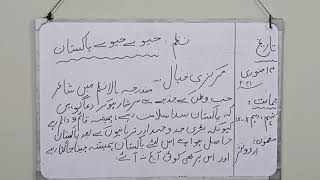 نظم: جیوے جیوے پاکستان
تاریخ
۱۴ جنوری
۲۰۲۱
جماعت:
مضمون:
اردو لازمی
مرکزی خیال: مندرجہ بالا نظم میں شاعر
حب وطن کے جذبے سے سرشار ہو کر دعا گو ہیں
کہ پاکستان سدا سلامت رہے، ہمیشہ قائم و دائم رہے
کیونکہ بڑی جدوجہد اور قربانیوں کے بعد پاکستان
حاصل ہوا ہے اس لئے پاکستان ہمیشہ جیتا جاگتا رہے
اور اس پر کبھی کوئی آنچ نہ آئے۔